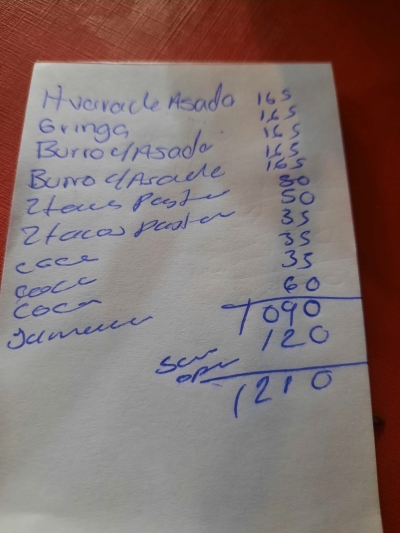 Huarache Asada 165
Gringa 165
Burro c/Asada 165
Burro c/Asada 165
165
2 tacos Pastor 50
2 tacos pastor 50
coca 35
coca 35
coca 35
Jamaica 60
1090
120
1210